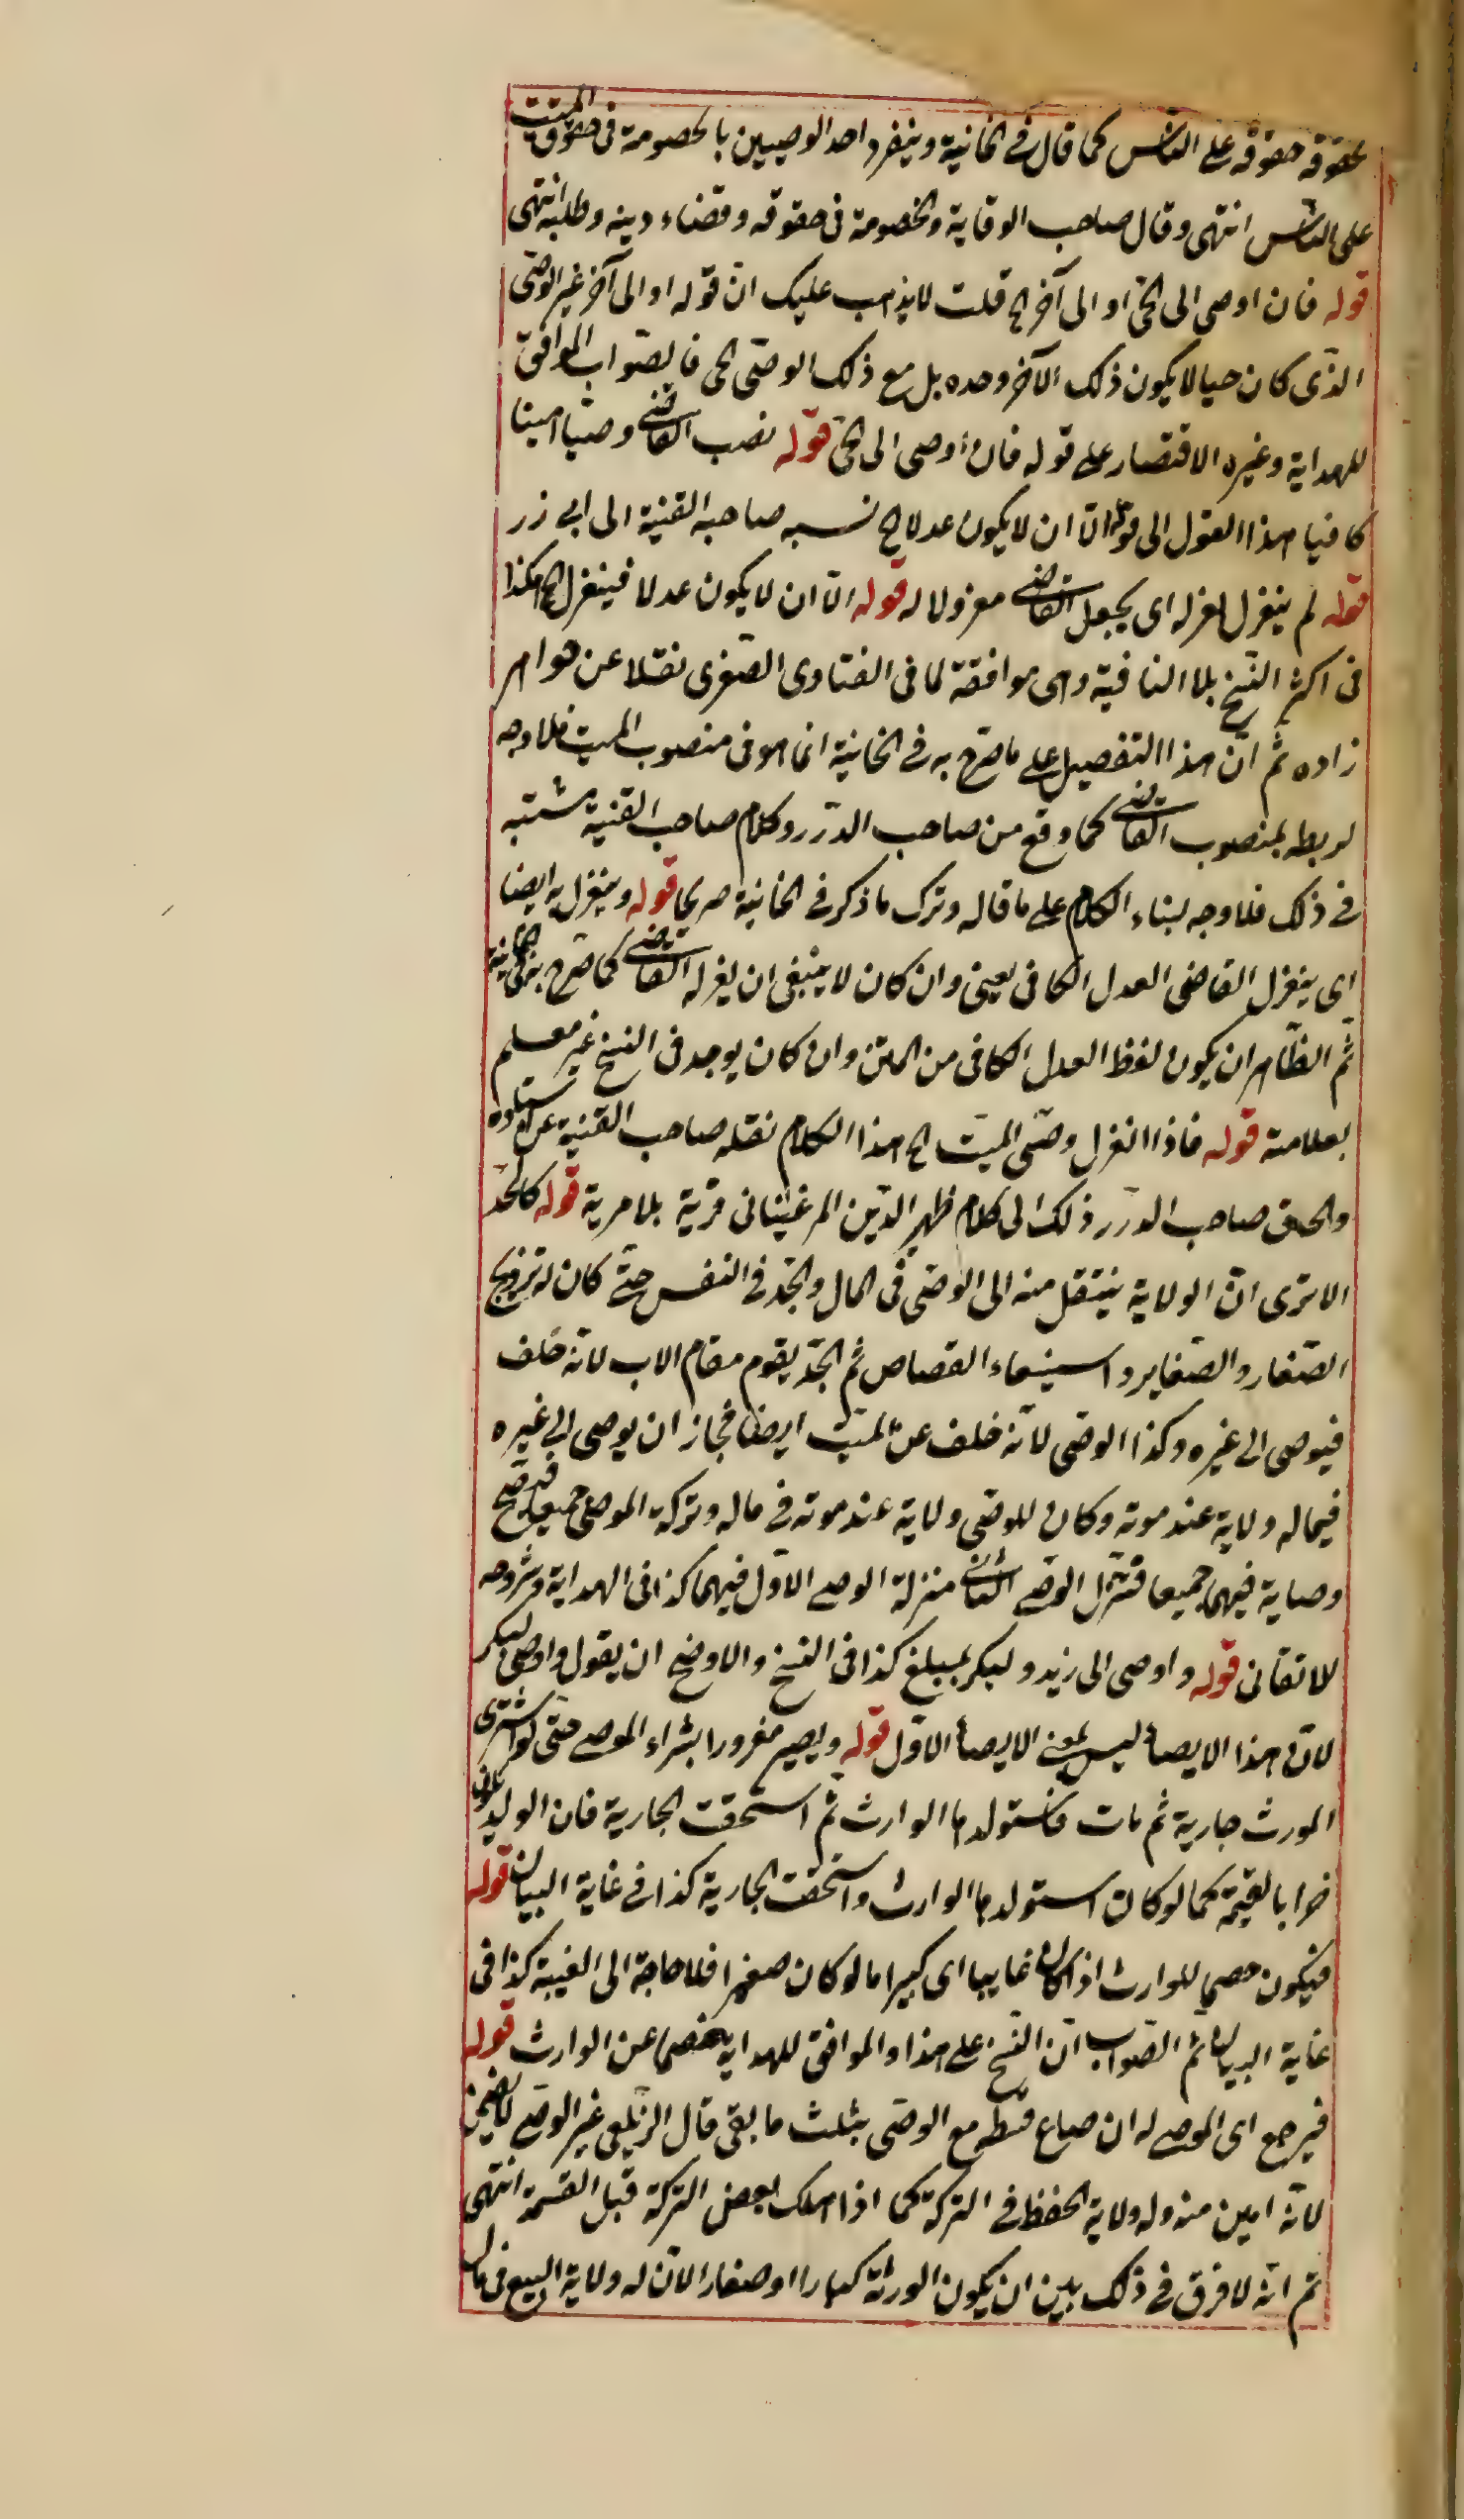 بحقوقه حقوقه على الناس كما قال في الخانية وينفرد احد الوصيين بالخصومة في حقوق الميت
على الناس انتهى وقال صاحب الوقاية والخصومة في حقوقه وقضاء دينه وطلبه انتهى
قوله فان اوصى الى الحي او الى آخر الخ قلت لا يذهب عليك ان قوله او الى آخر غير الوصي
الذي كان حيا لا يكون ذلك الآخر وحده بل مع ذلك الوصي الحي فالصواب الموافق
للهداية وغيره الاقتصار على قوله فان أوصى الى الحي قوله نصب القاضي وصيا امينا
كافيا هذا القول الى قوله الا ان لا يكون عدلا الخ نسبه صاحب القنية الى ابي ذر
قوله لم ينعزل بعزله اى بجعل القاضي معزولا له قوله الا ان لا يكون عدلا فينعزل الخ هكذا
في اكثر النسخ بلا النافية وهى موافقة لما في الفتاوى الصغرى نقلا عن خواهر
زاده ثم ان هذا التفصيل على ما صرح به في الخانية انما هو في منصوب الميت فلا وجه
لربطه بمنصوب القاضي كما وقع من صاحب الدرر وكلام صاحب القنية مشتبه
في ذلك فلا وجه لبناء الكلام على ما قاله وترك ما ذكر في الخانية صريحا قوله وينعزل به ايضا
اى ينعزل القاضي العدل الكافي يعنى وان كان لا ينبغى ان يعزله القاضي كما صرح به في الخانية
ثم الظاهر ان يكون لفظ العدل الكافي من المتن وان كان يوجد في النسخ غير معلم
بعلامته قوله فاذا انعزل وصي الميت الخ هذا الكلام نقله صاحب القنية عن استاده
والحق صاحب الدرر ذلك الى كلام ظهير الدين المرغيناني فرية بلا مرية قوله كالجد
الا ترى ان الولاية ينتقل منه الى الوصي في المال والجد في النفس حتى كان له تزويج
الصغار والصغاير واستيفاء القصاص ثم الجد يقوم مقام الاب لانه خلف
فيوصى الى غيره وكذا الوصي لانه خلف عن الميت ايضا فجاز ان يوصى الى غيره
فيما له ولاية عند موته وكان للوصي ولاية عند موته في ماله وتركة الموصي جميعا فيصح
وصاية فيهما جميعا فنزل الوصي الثاني منزلة الوصي الاول فيهما كذا في الهداية وشروحه
للاتقاني قوله واوصى الى زيد ولبكر بمبلغ كذا في النسخ والاوضح ان يقول واوصى لبكر
لان هذا الايصاء ليس بمعنى الايصاء الاول قوله ويصير مغرورا بشراء الموصي حتى لو اشترى
المورث جارية ثم مات فاستولدها الوارث ثم استحقت الجارية فان الوليد يكون
حرا بالقيمة كما لو كان استولدها الوارث واستحقت الجارية كذا في غاية البيان قوله
فيكون خصما للوارث اذا كان غايبا اى كبيرا اما لو كان صغيرا فلا حاجة الى الغيبة كذا في
غاية البيان ثم الصواب ان النسخ على هذا والموافق للهداية خصما عن الوارث قوله
فيرجع اى الموصى له ان ضاع قسطه مع الوصي بثلث ما بقى قال الزيلعي غير الوصي لا يضمن
لانه امين منه وله ولاية الحفظ في التركة كما اذا هلك بعض التركة قبل القسمة انتهى
ثم انه لا فرق في ذلك بين ان يكون الورثة كبارا او صغارا الا ان له ولاية البيع في مال